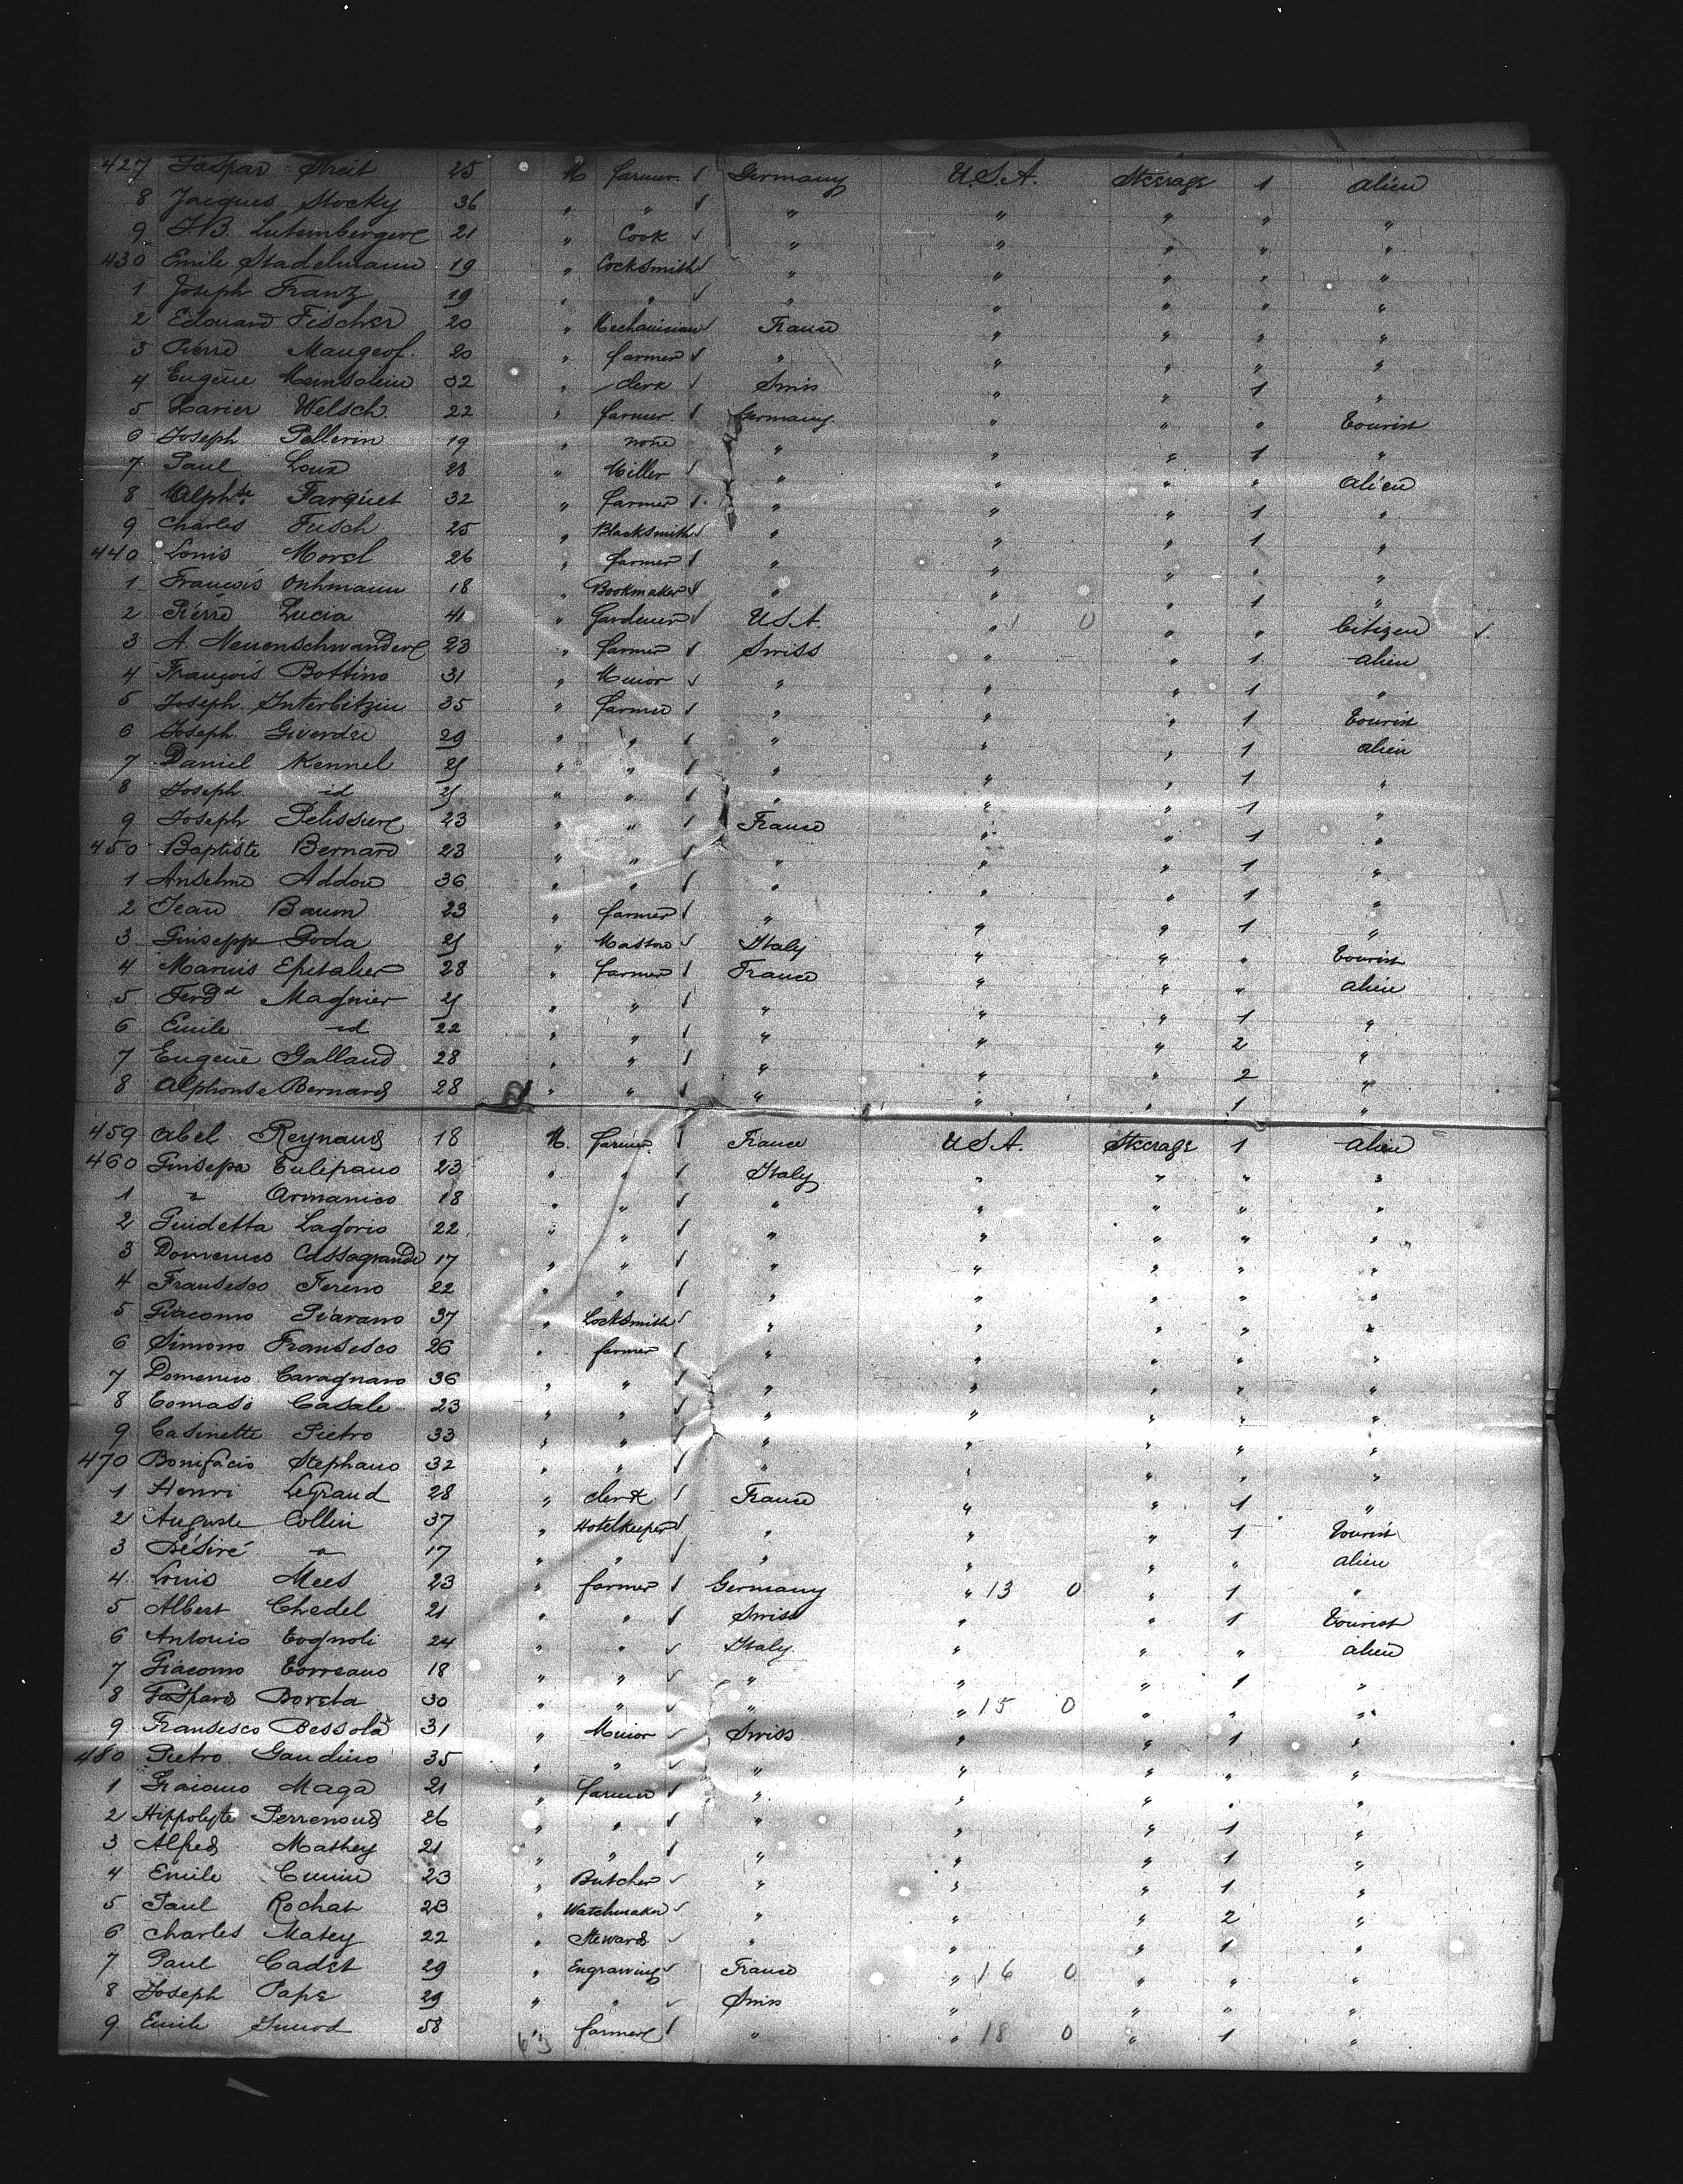 427 Gaspar Streit 25 M farmer Germany U.S.A. Steerage 1 alien
8 Jacques Stocky 36 " " " " " " "
9 J.B. 21 " Cook " " " " "
430 Emile Stadelmann 19 " Locksmith " " " " "
1 Joseph Franz 19 " " " " " " "
2 Edouard Fischer 20 " Mechanician France " " " "
3 Pierre 20 " farmer " " " " "
4 Eugène 32 " clerk Swiss " " 1 "
5 Xavier Welsch 22 " farmer Germany " " " tourist
6 Joseph Pellerin 19 " none " " " 1 "
7 Paul 23 " Miller " " " " alien
8 Farquet 32 " farmer " " " 1 "
9 Charles Fusch 25 " Blacksmith " " " 1 "
440 Louis Morel 26 " farmer " " " " "
1 François Onhmann 18 " Bookmaker " " " 1 "
2 Pierre Lucia 41 " Gardener U.S.A. " 1 0 " " Citizen
3 A. Neuenschwander 23 " farmer Swiss " " 1 alien
4 François Bottino 31 " Minor " " " 1 "
5 Joseph Interbitzin 35 " farmer " " " 1 tourist
6 Joseph 29 " " " " " 1 alien
7 Daniel Kennel 25 " " " " " 1 "
8 Joseph id 25 " " " " " 1 "
9 Joseph Pelissier 23 " " France " " 1 "
450 Baptiste Bernard 23 " " " " " 1 "
1 Anselme Addou 36 " " " " " 1 "
2 Jean 23 " farmer " " " 1 "
3 Giuseppe Goda 25 " Italy " " " tourist
4 Marius Epitalier 28 " farmer France " " " alien
5 Ferdd Magnier 25 " " " " " 1 "
6 Emile id 22 " " " " " 2 "
7 Eugène Galland 28 " " " " " 2 "
8 Alphonse Bernard 28 " " " " " 1 "
459 Abel Reynaud 18 M. farmer France U.S.A. Steerage 1 alien
460 Giusepa Tulipano 23 " " Italy " " " "
1 " Armanico 18 " " " " " " "
2 Guidetta Lagorio 22 " " " " " " "
3 Domenico Cassagrande 17 " " " " " " "
4 Fransesco Fereno 22 " " " " " " "
5 Giacomo Piavano 37 " Locksmith " " " " "
6 Simono Fransesco 26 " farmer " " " " "
7 Domenico Caragnaro 36 " " " " " " "
8 Tomaso Casale 23 " " " " " " "
9 Casinette Pietro 33 " " " " " " "
470 Bonifacio Stephano 32 " " " " " " "
1 Henri LeGrand 28 " clerk France " " 1 "
2 Auguste Collin 37 " Hotelkeeper " " " 1 tourist
3 Désiré " 17 " " " " " " alien
4 Louis Mees 23 " farmer Germany " 13 0 " 1 "
5 Albert Chedel 21 " " Swiss " " 1 tourist
6 Antonio Tognoli 24 " " Italy " " " alien
7 Giacomo Torreano 18 " " " " " 1 "
8 Gasparo Boreta 30 " " " " 15 0 " " "
9 Fransesco Bessola 31 " Minor Swiss " " 1 "
480 Pietro Gaudino 35 " " " " " " "
1 Graiomo Maga 21 " farmer " " " " "
2 Hippolyte Perrenoud 26 " " " " " 1 "
3 Alfred Mathey 21 " " " " " 1 "
4 Emile 23 " Butcher " " " 1 "
5 Paul Rochat 23 " Watchmaker " " " 2 "
6 Charles Matey 22 " Steward " " " 1 "
7 Paul Cadet 29 " Engraving France " 16 0 " " "
8 Joseph Pape 29 " " Swiss " " " "
9 Emile Junod 58 " farmer " " 18 0 " 1 "